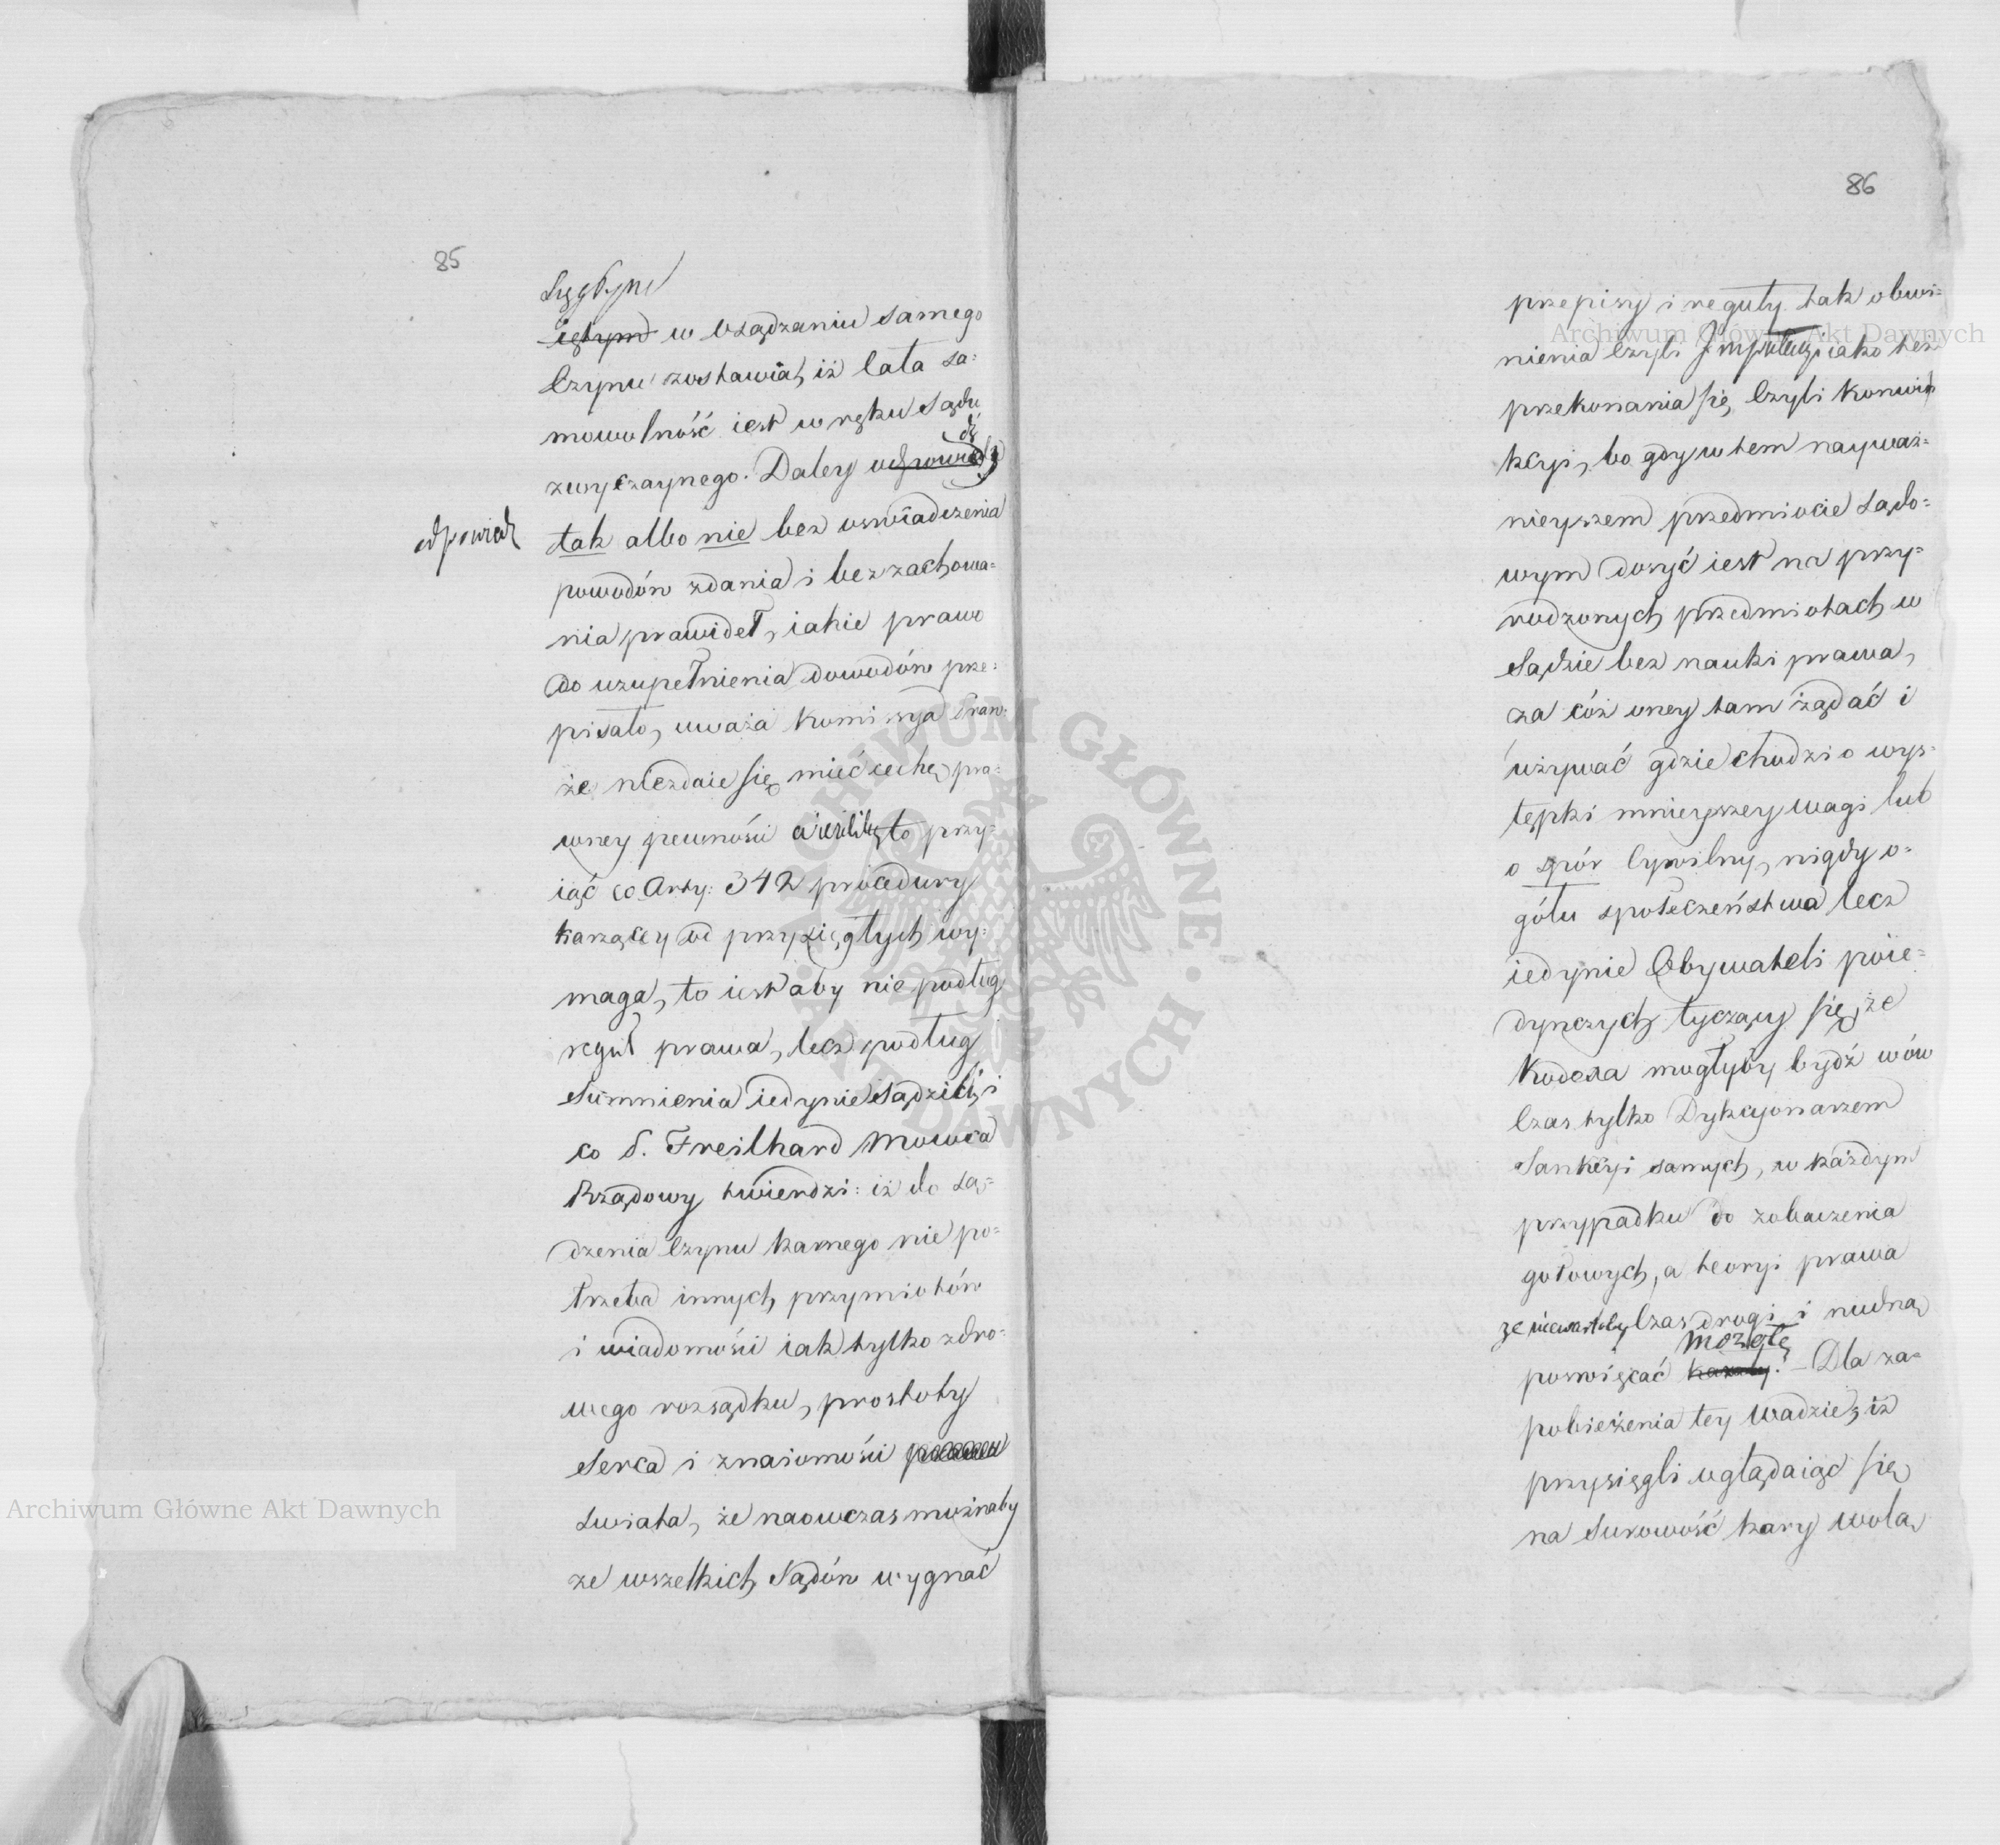 85
Sęgdyne
iętym w osądzaniu samego
Czynu zostawiał, iż cała sa=
mowolność iest w ręku Sądu
zwyczaynego. Daley
odpowiedź
tak albo nie bez oświadczenia
powodów zdania i bez zachowa=
nia prawideł, iakie prawo
do uzupełnienia dowodów prze=
pisało, uważa Kommissya Praw:
że niezdaie się mieć cechę pra=
wney pewności ieżeliby to przy=
iąć co Arty: 342 procedury
karzącey od przysięgłych wy=
maga, to iest aby nie podług
reguł prawa, lecz podług
Sumnienia iedynie sądzili, i
co P. Treilhard Mowca
Rządowy twierdzi: iż do są=
dzenia Czynu karnego nie po=
trzeba innych przymiotów
i wiadomości iak tylko zdro=
wego rozsądku, prostoty
Serca i znaiomości
Świata, że naówczas możnaby
ze wszelkich Sądów wygnać
86
przepisy i reguły tak obwi=
nienia Czyli Imputacyi iako też
przekonania się, Czyli Konwi=
kcyi, bo gdy w tem nayważ=
nieyszem przedmiocie Sądo=
wym dosyć iest na przy=
rodzonych przedmiotach w
Sądzie bez nauki prawa,
za cóż oney tam żądać i
używać gdzie chodzi o wys=
tępki mnieyszey wagi lub
o spór Cywilny, nigdy o=
gółu społeczeństwa lecz
iedynie Obywateli poie=
dynczych tyczący się, że
Kodexa mogłyby bydź wów
Czas tylko Dykcyonarzem
Sankcyi samych, w każdym
przypadku do zobaczenia
gotowych, a teoryi prawa
że niewartoby Czas drogi i nudną
mozołę
poświęcać kazały. – Dla za=
pobieżenia tey wadzie, iż
przysięgli oglądaiąc się
na surowość kary wolą
Archiwum Główne Akt Dawnych
Archiwum Główne Akt Dawnych
ARCHIWUM GŁÓWNE · AKT DAWNYCH ·